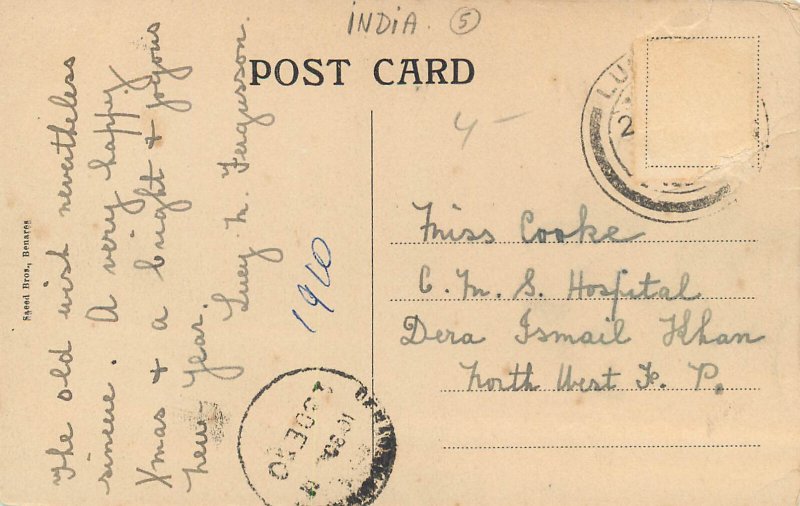 INDIA. 5
POST CARD
4 -
LU
2
The old wish nevertheless
sincere. A very happy
Xmas & a bright & joyous
new Year.
Lucy M. Fergusson.
1910
Saeed Bros., Benares
Miss Cooke
C. M. S. Hospital
Dera Ismail Khan
North West F. P.
23DE10